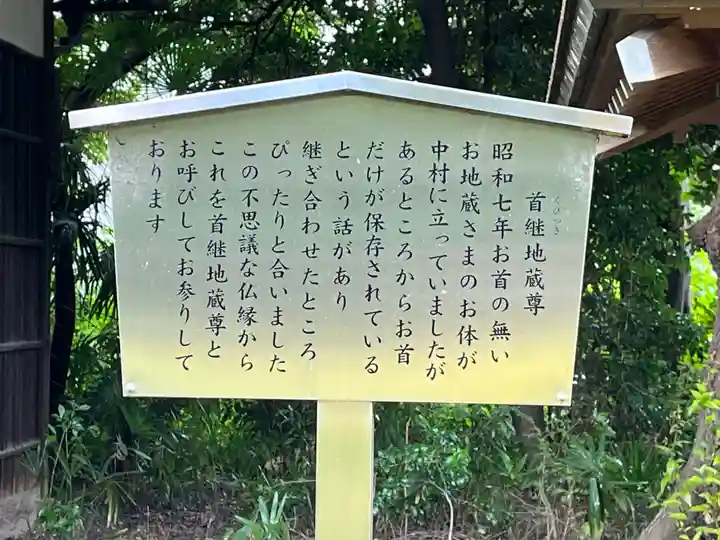 首継地蔵尊
くびつぎ
昭和七年お首の無い
お地蔵さまのお体が
中村に立っていましたが
あるところからお首
だけが保存されている
という話があり
継ぎ合わせたところ
ぴったりと合いました
この不思議な仏縁から
これを首継地蔵尊と
お呼びしてお参りして
おります